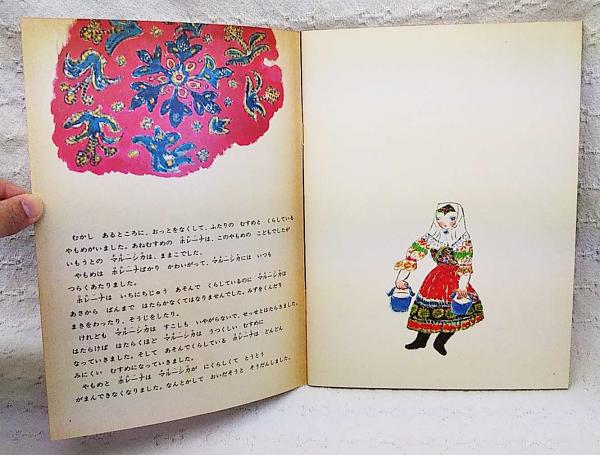 むかし　あるところに、おっとをなくして、ふたりの　むすめと　くらしている
やもめがいました。あねむすめの　ホレーナは、このやもめの　こどもでしたが
いもうとの　マルーシカは、ままこでした。
やもめは　ホレーナばかり　かわいがって、マルーシカには　いつも
つらくあたりました。
ホレーナは　いちにちじゅう　あそんで　くらしているのに　マルーシカは
あさから　ばんまで　はたらかなくてはなりませんでした。みずをくんだり
まきをわったり、そうじをしたり。
けれども　マルーシカは　すこしも　いやがらないで、せっせとはたらきました。
はたらけば　はたらくほど　マルーシカは　うつくしい　むすめに
なっていきました。そして　あそんでくらしている　ホレーナは　どんどん
みにくい　むすめになっていきました。
やもめと　ホレーナは　マルーシカが　にくらしくて　とうとう
がまんできなくなりました。なんとかして　おいだそうと　そうだんしました。